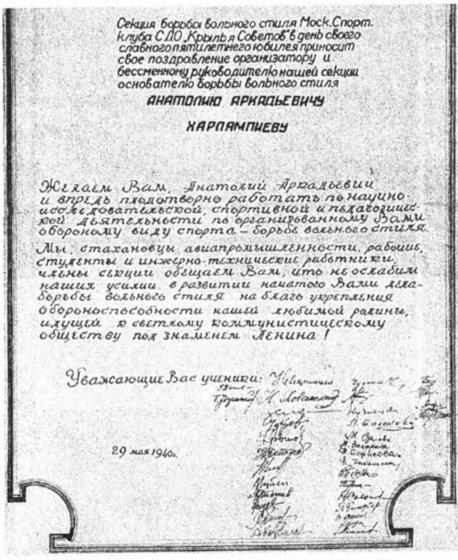 Секция борьбы вольного стиля Моск. Спорт.
клуба СДО „Крылья Советов" в день своего
славного пятилетнего юбилея приносит
свое поздравление организатору и
бессменному руководителю нашей секции
основателю борьбы вольного стиля
АНАТОЛИЮ АРКАДЬЕВИЧУ
ХАРЛАМПИЕВУ
Желаем Вам, Анатолий Аркадьевич
и впредь плодотворно работать по научно
исследовательской, спортивной и педагогичес-
кой деятельности по организованному Вами
оборонному виду спорта – борьбе вольного стиля.
Мы, стахановцы авиапромышленности, рабочие,
студенты и инжерно-технические работники,
члены секции обещаем Вам, что не ослабим
наших усилий в развитии начатого Вами дела-
борьбы вольного стиля на благо укрепления
обороноспособности нашей любимой родины,
идущей к светлому коммунистическому
обществу под знаменем Ленина!
Уважающие Вас ученики:
29 мая 1940г.